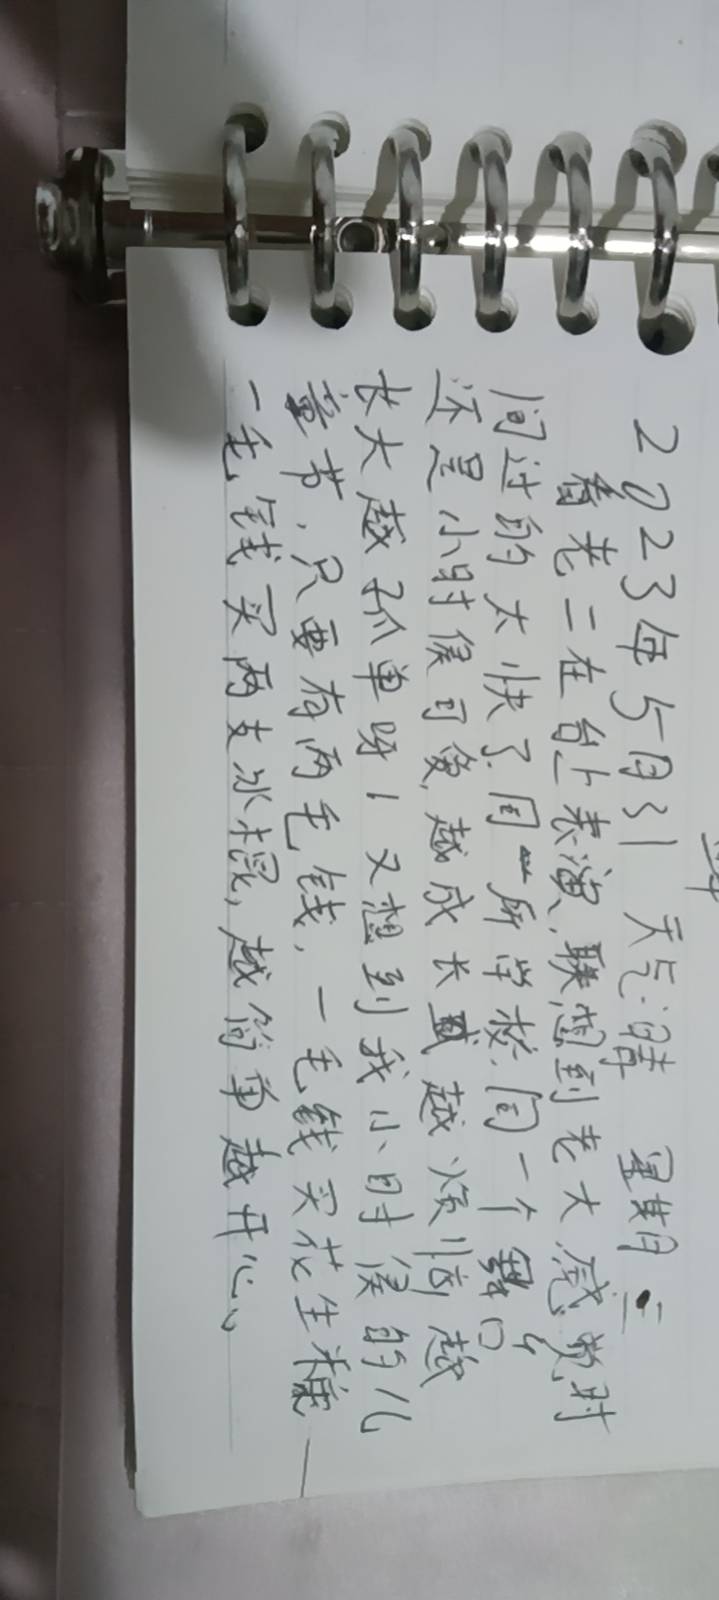 2023年5月31 天气:晴 星期三
看老二在台上表演,联想到老大,感觉时
间过的太快了.同一所学校.同一个舞台
还是小时侯可爱,越成长越烦恼越
长大越孤单呀!又想到我小时侯的儿
童节,只要有两毛钱,一毛钱买花生糖
一毛钱买两支冰棍,越简单越开心、